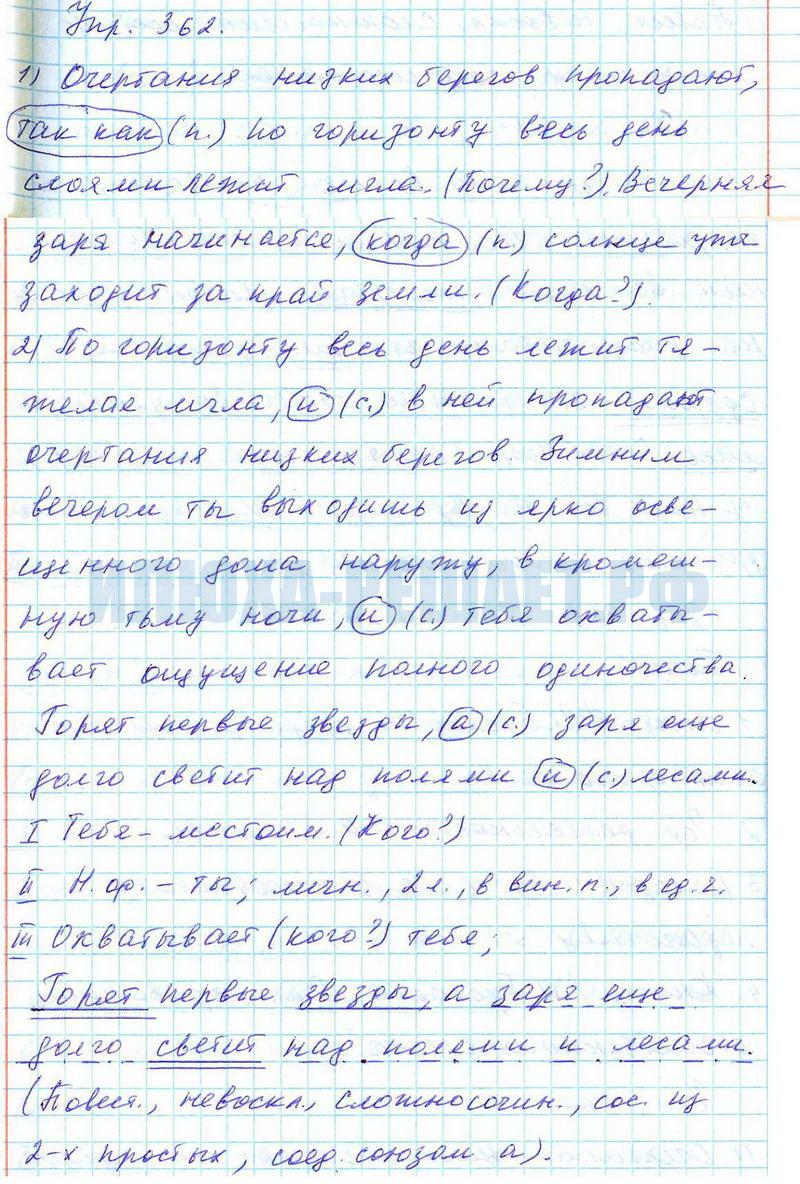 Упр. 362.
1) Очертания низких берегов пропадают,
так как (п.) по горизонту весь день
слоями лежит мгла. (Почему?). Вечерняя
заря начинается, когда (п.) солнце уже
заходит за край земли. (Когда?).
2) По горизонту весь день лежит тя-
желая мгла, и (с.) в ней пропадают
очертания низких берегов. Зимним
вечером ты выходишь из ярко осве-
щенного дома наружу, в кромеш-
ную тьму ночи, и (с.) тебя охваты-
вает ощущение полного одиночества.
Горят первые звезды, а (с.) заря еще
долго светит над полями и (с.) лесами.
I Тебя - местоим. (Кого?)
II Н.ф. - ты; личн., 2 л., в вин. п., в ед. ч.
III Охватывает (кого?) тебя;
Горят первые звезды, а заря еще
долго светит над полями и лесами.
(Повест., невоскл., сложносочин., сос. из
2-х простых, соед. союзом а).
ИЛЮХА-РЕШАЕТ.РФ